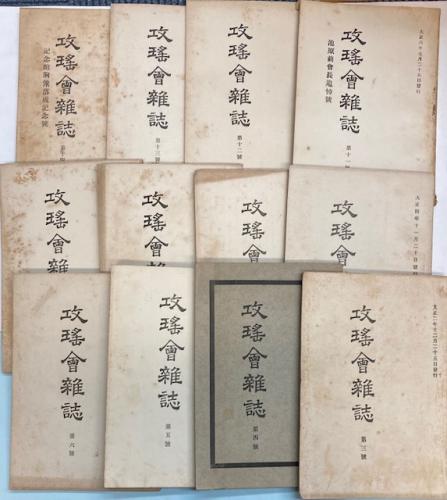 大正六年七月二十六日發行
攻瑤會雜誌
第十一
池原前會長追悼號
攻瑤會雜誌
第十二號
攻瑤會雜誌
第十三號
攻瑤會雜誌
第十四
記念館胸像落成記念號
大正四年十一月二十日發行
攻瑤會
攻瑤會
攻瑤會雜
攻瑤會雜
大正二年十二月二十五日發行
攻瑤會雜誌
第三號
攻瑤會雜誌
第四號
攻瑤會雜誌
第五號
攻瑤會雜誌
第六號